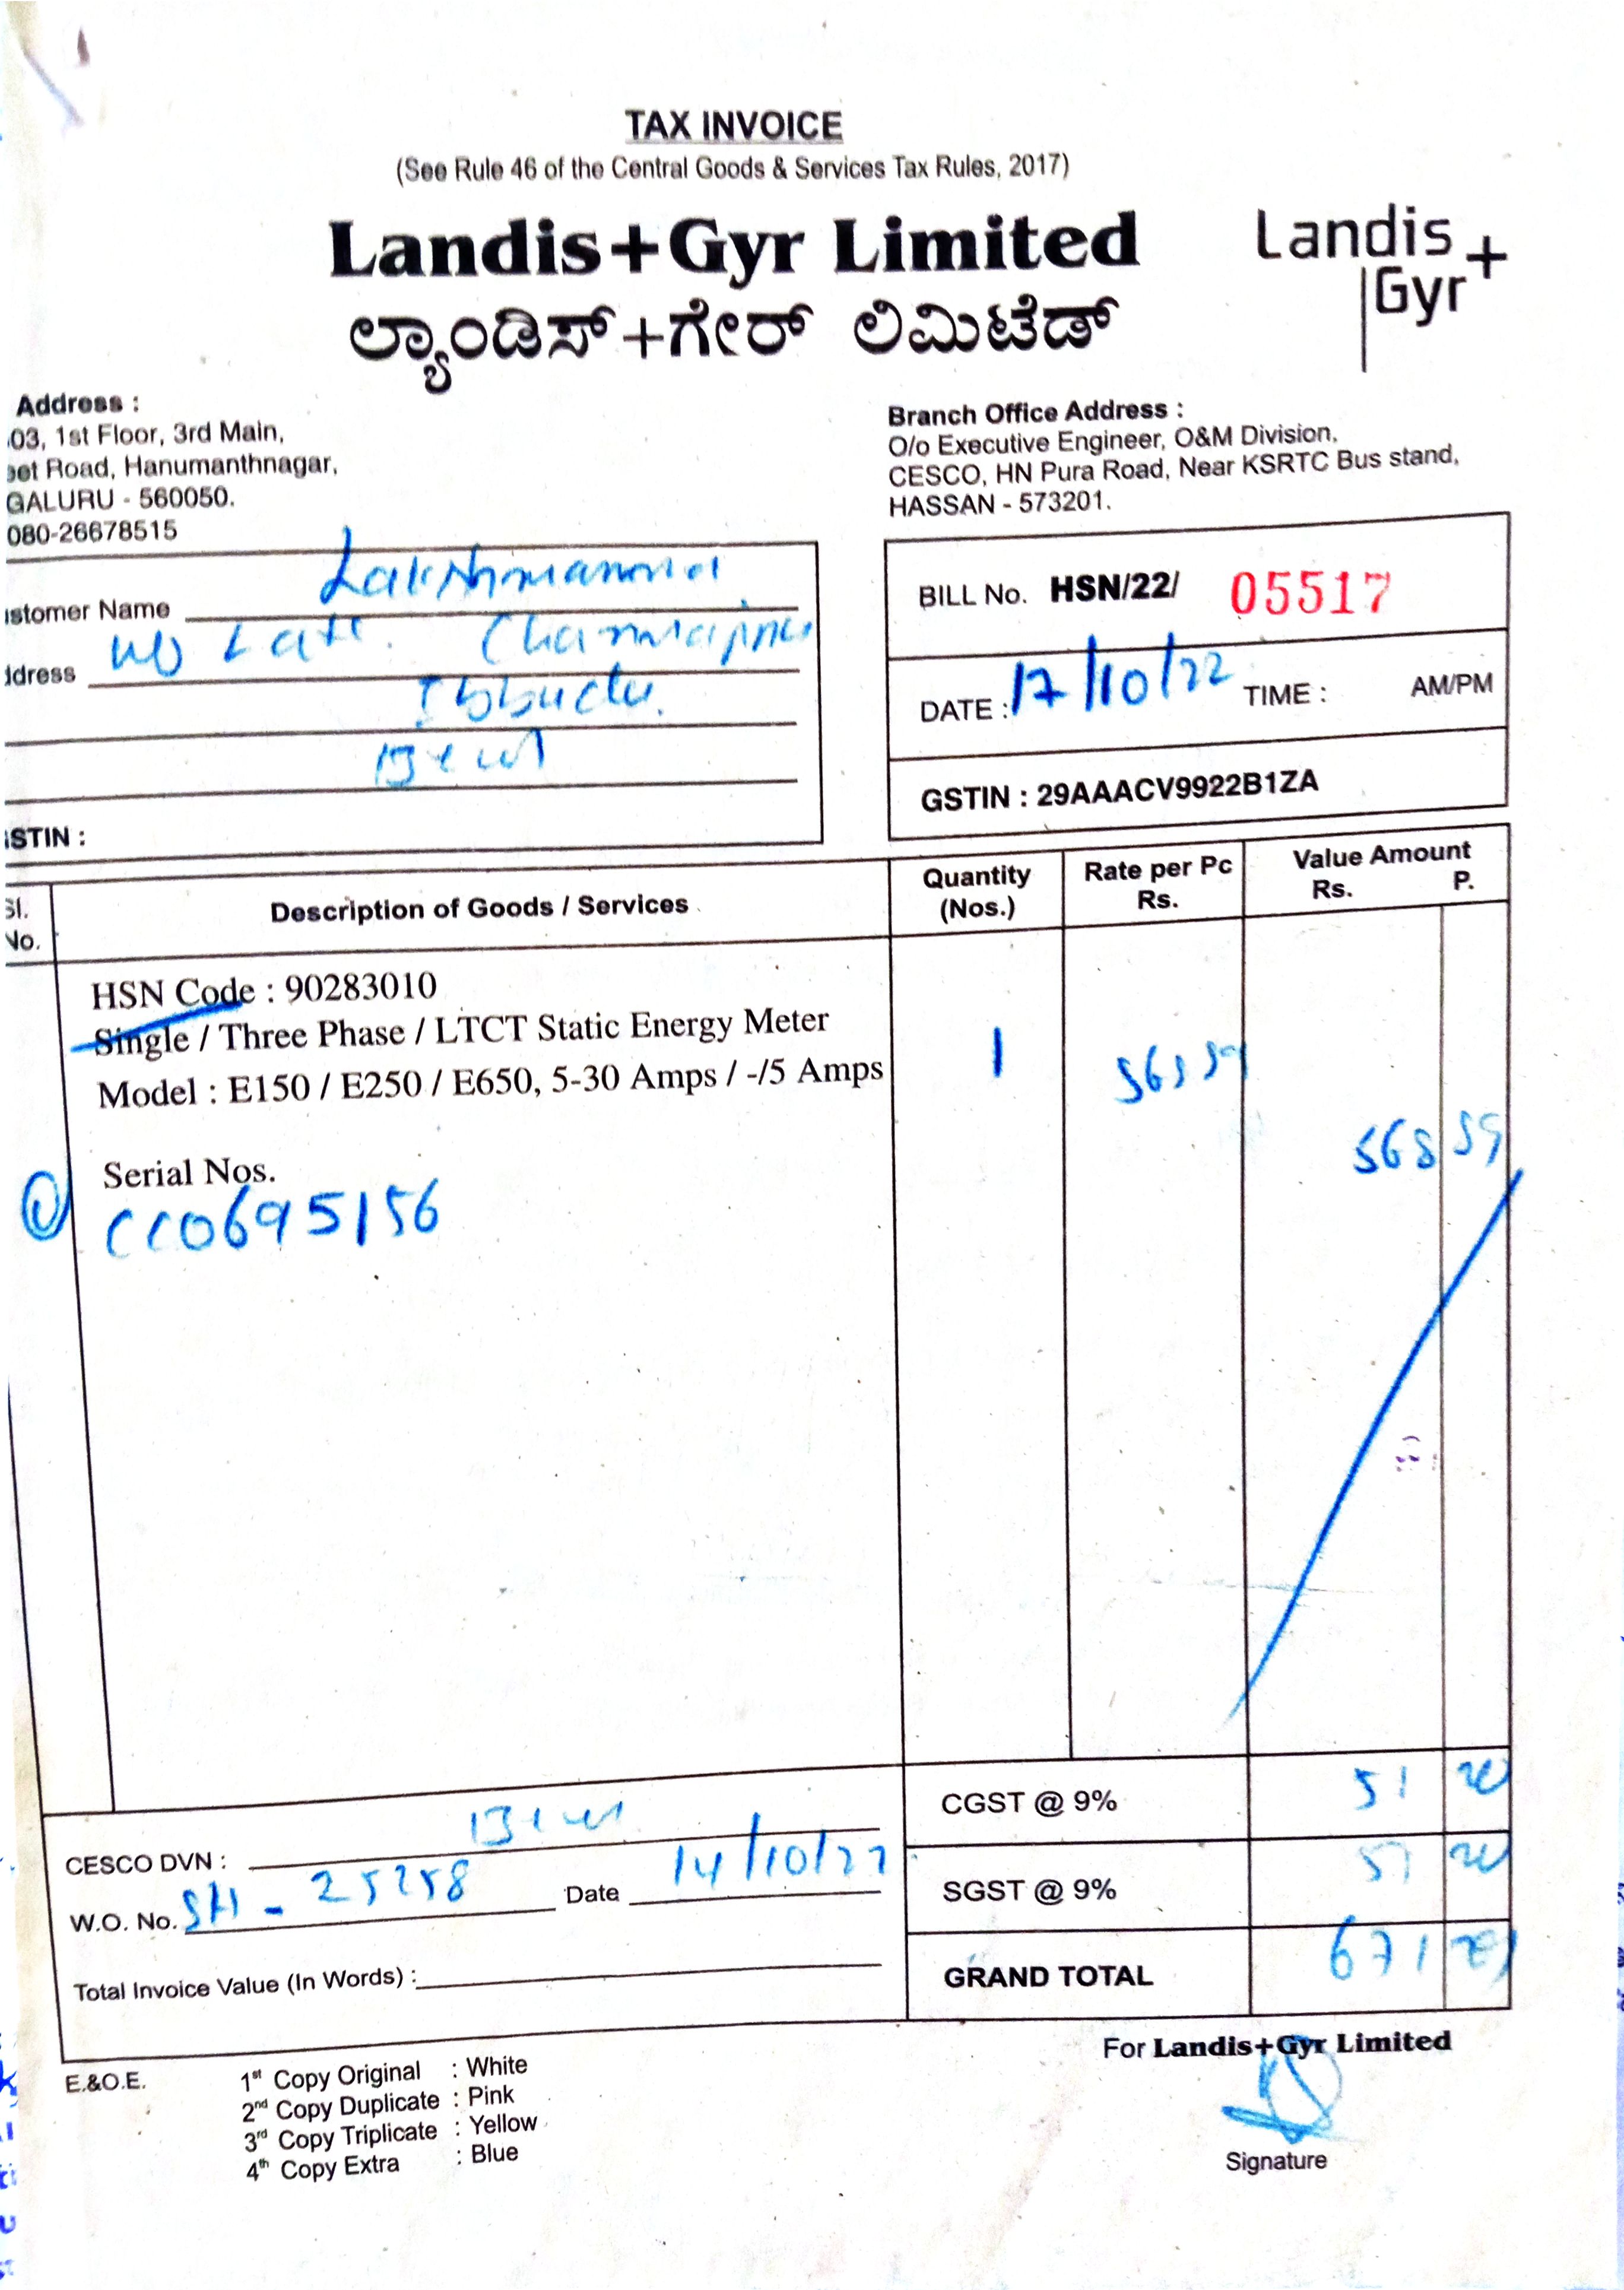 TAX INVOICE
(See Rule 46 of the Central Goods & Services Tax Rules, 2017)
Landis+Gyr Limited
ಲ್ಯಾಂಡಿಸ್+ಗೇರ್ ಲಿಮಿಟೆಡ್
Landis
Gyr+
Address :
03, 1st Floor, 3rd Main,
Road, Hanumanthnagar,
GALURU - 560050.
080-26678515
Branch Office Address :
O/o Executive Engineer, O&M Division,
CESCO, HN Pura Road, Near KSRTC Bus stand,
HASSAN - 573201.
stomer Name Lakshmamma
dress Late
STIN :
BILL No. HSN/22/ 05517
DATE : 17/10/22 TIME : AM/PM
GSTIN : 29AAACV9922B1ZA
Sl. No. Description of Goods / Services Quantity (Nos.) Rate per Pc Rs. Value Amount Rs. P.
HSN Code : 90283010
Single / Three Phase / LTCT Static Energy Meter
Model : E150 / E250 / E650, 5-30 Amps / -/5 Amps 1
Serial Nos.
CC0695156
CGST @ 9% 51
CESCO DVN :
SGST @ 9% 51
W.O. No. Date 14/10/22
GRAND TOTAL 671
Total Invoice Value (In Words) :
For Landis+Gyr Limited
E.&O.E.
1st Copy Original : White
2nd Copy Duplicate : Pink
3rd Copy Triplicate : Yellow
4th Copy Extra : Blue
Signature